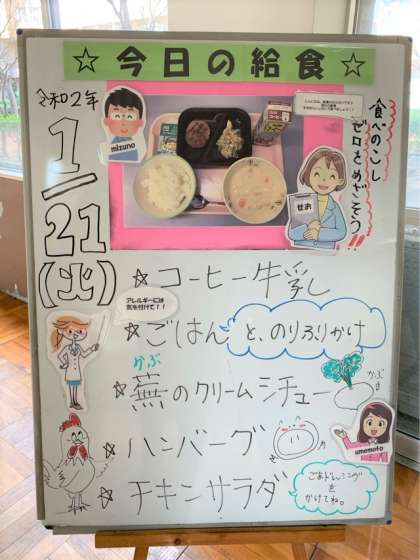 ☆今日の給食☆
令和2年
1/21
(火)
mizuno
せお
食べのこし
ゼロをめざそう!!
☆コーヒー牛乳
アレルギーには
気を付けて!!
☆ごはんと、のりふりかけ
かぶ
☆蕪のクリームシチュー
かぶ
☆ハンバーグ
umemoto
☆チキンサラダ
ごまドレッシング
を
かけてね。